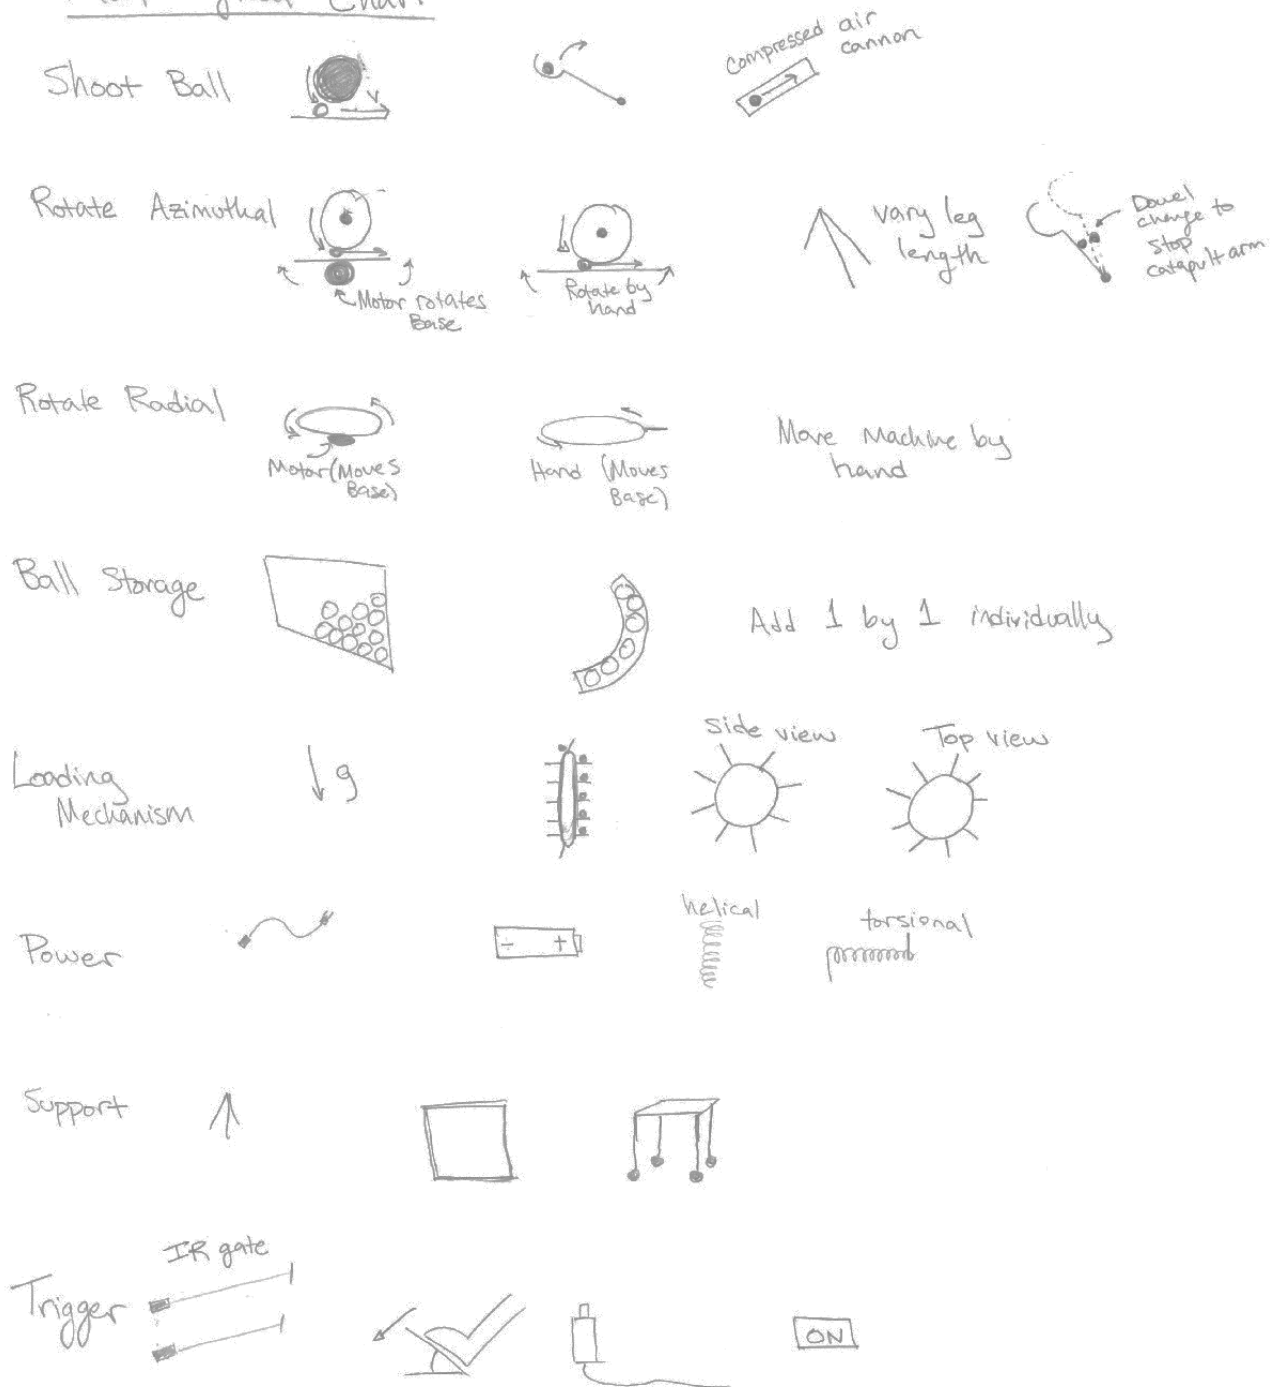 Chart
Shoot Ball
V
Compressed air
cannon
Rotate Azimuthal
Motor rotates
Base
Rotate by
hand
vary leg
length
Dowel
change to
stop
catapult arm
Rotate Radial
Motor (Moves
Base)
Hand (Moves
Base)
Move Machine by
hand
Ball Storage
Add 1 by 1 individually
Loading
Mechanism
g
Side view
Top view
Power
- +
helical
torsional
Support
Trigger
IR gate
ON